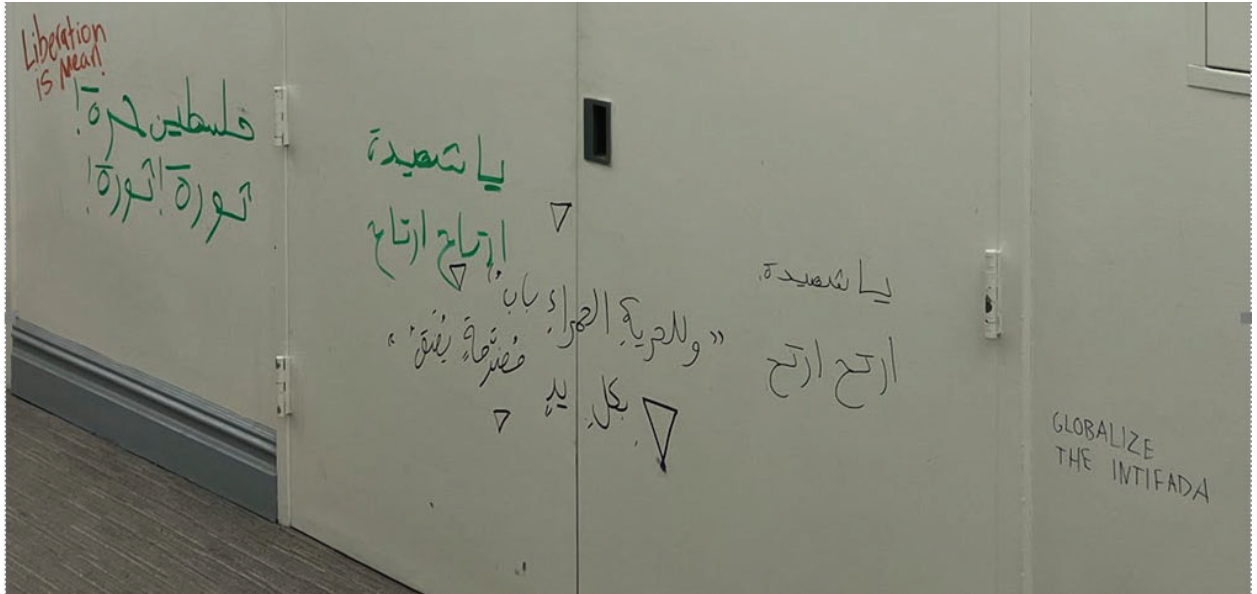 Liberation
is Mean
فلسطين حرة!
ثورة! ثورة!
يا شهيدة
ارتاح ارتاح
"وللحريةِ الحمراءِ بابٌ
بكلِ يدٍ مُضرّجةٍ يُدَقُ"
يا شهيدة
ارتح ارتح
GLOBALIZE
THE INTIFADA